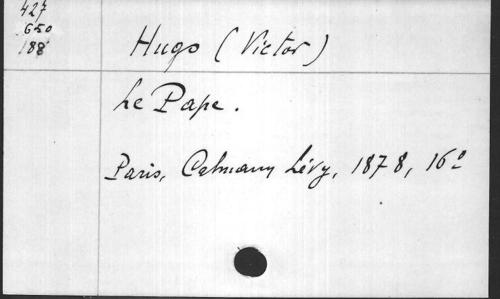 427
650
188
Hugo (Victor)
Le Pape.
Paris, Calmann Lévy, 1878, 16º